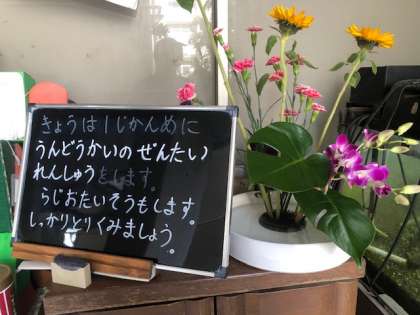 きょうは1じかんめに
うんどうかいのぜんたい
れんしゅうをします。
らじおたいそうもします。
しっかりとりくみましょう。